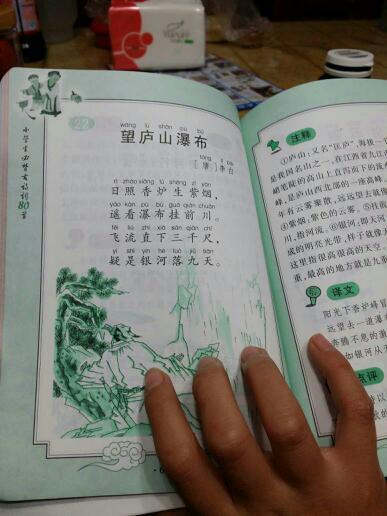 小学生必背古诗词80首
22
wàng lú shān pù bù
望庐山瀑布
táng lǐ bái
[唐]李白
rì zhào xiāng lú shēng zǐ yān
日照香炉生紫烟,
yáo kàn pù bù guà qián chuān
遥看瀑布挂前川。
fēi liú zhí xià sān qiān chǐ
飞流直下三千尺,
yí shì yín hé luò jiǔ tiān
疑是银河落九天。
注释
①庐山,又名“匡庐”,海拔一
是我国名山之一,在江西省九江
峰,是庐山西北部的一座
年有云雾聚散,远远望去
③紫烟:紫色的云雾。④挂
川,指河流。⑥银河:即天
成的明亮光带,样子就像
这里指很高很高的天空。
重,最高的地方就是九重
译文
阳光下香炉峰
远望去一道瀑
奔腾不息的激
如银河从天
点评